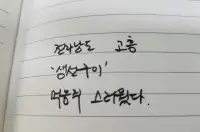 전라남도 고흥
'생선구이'
먹응러 스러웠다.